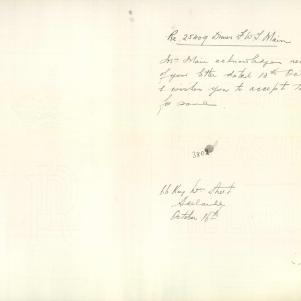 Re 25409 Driver F W F Main
Mr Main acknowledges
of your letter dated 13th
& wishes you to accept
for same.
3802
66 King Wm Street
Adelaide
October 18th